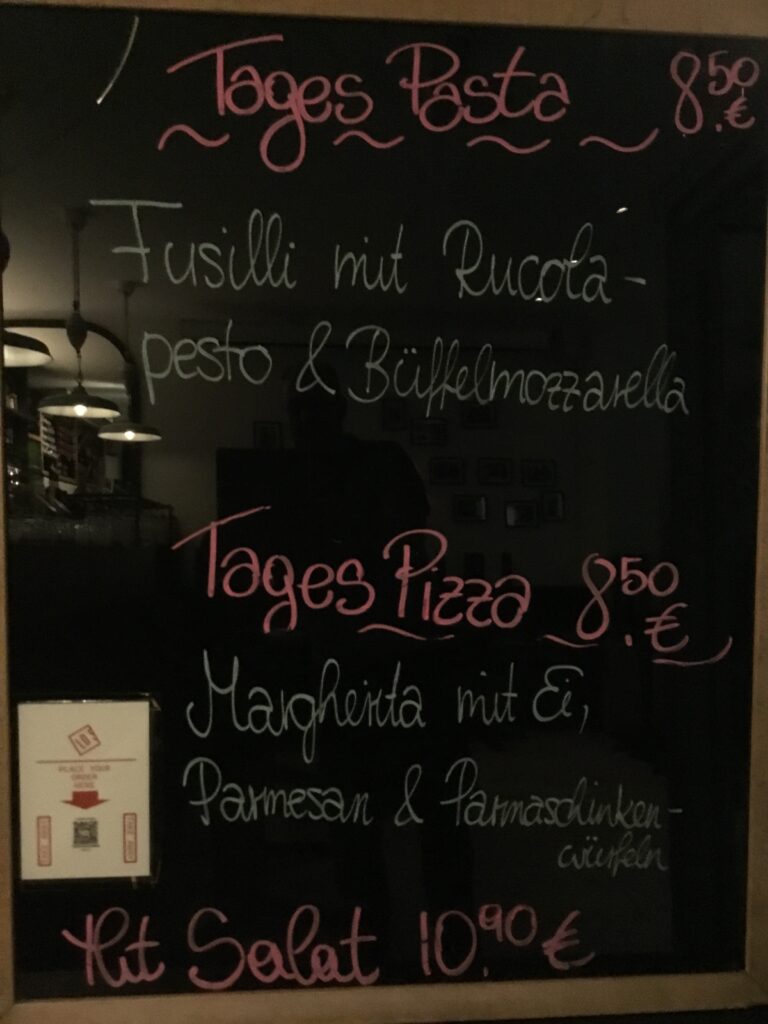 Tages Pasta 8.50 €
Fusilli mit Rucola-
pesto & Büffelmozzarella
Tages Pizza 8.50 €
Margherita mit Ei,
Parmesan & Parmaschinken-
würfeln
PLACE YOUR
ORDER
HERE
Mit Salat 10.90 €